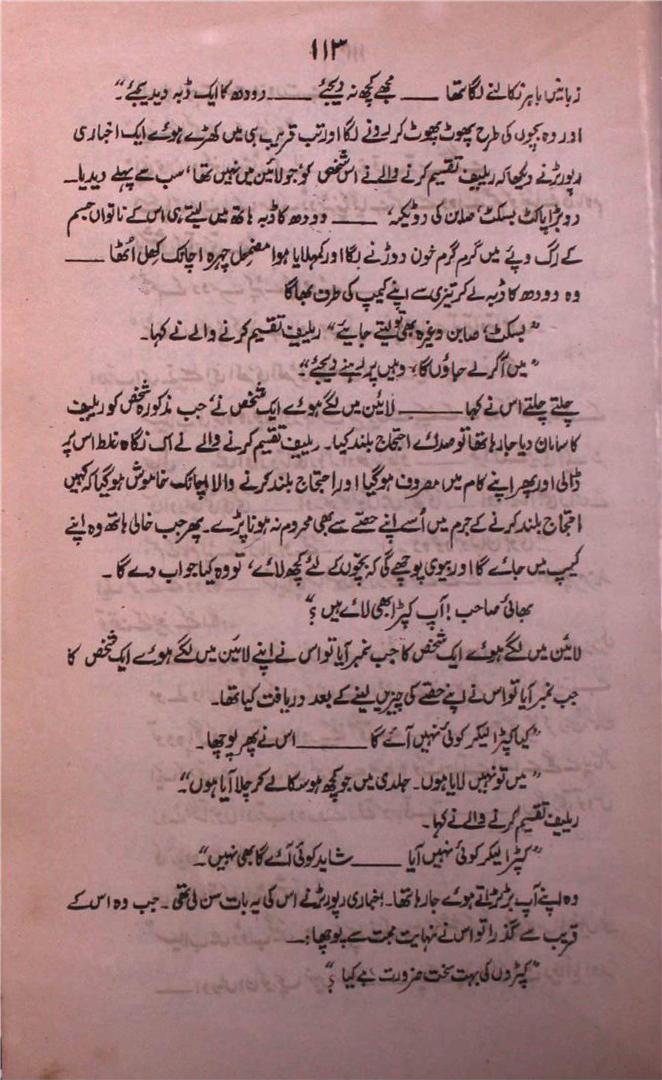 ۱۱۳
زبانیں باہر نکالنے لگا تھا ——— مجھے کچھ نہ دیجئے ——— دودھ کا ایک ڈبہ دیدیجئے"۔
اور وہ بچوں کی طرح پھوٹ پھوٹ کر رونے لگا اور تب قریب ہی میں کھڑے ہوئے ایک اخباری
رپورٹر نے دیکھا کہ ریلیف تقسیم کرنے والے نے اس شخص کو جو لائین میں نہیں تھا، سب سے پہلے دیدیا۔
دو بڑا پاکٹ بسکٹ، صابن کی دو ٹیکہ، ——— دودھ کا ڈبہ ہاتھ میں لیتے ہی اس کے ناتواں جسم
کے رگ و پئے میں گرم گرم خون دوڑنے لگا اور کمہلایا ہوا مضمحل چہرہ اچانک کھل اُٹھا ———
وہ دودھ کا ڈبہ لے کر تیزی سے اپنے کیمپ کی طرف بھاگا
"بسکٹ، صابن وغیرہ بھی تو لیتے جایئے" ریلیف تقسیم کرنے والے نے کہا۔
"میں آکر لے جاؤں گا، وہیں پر رہنے دیجئے"۔
چلتے چلتے اس نے کہا ——— لائین میں لگے ہوئے ایک شخص نے جب مذکورہ شخص کو ریلیف
کا سامان دیا جا رہا تھا تو صدائے احتجاج بلند کیا۔ ریلیف تقسیم کرنے والے نے اک نگاہ غلط اس پر
ڈالی اور پھر اپنے کام میں مصروف ہو گیا اور احتجاج بلند کرنے والا اچانک خاموش ہو گیا کہ کہیں
احتجاج بلند کرنے کے جرم میں اُسے اپنے حصّے سے بھی محروم نہ ہونا پڑے۔ پھر جب خالی ہاتھ وہ اپنے
کیمپ میں جائے گا اور بیوی پوچھے گی کہ بچّوں کے لئے کچھ لائے، تو وہ کیا جواب دے گا۔
بھائی صاحب! آپ کپڑا بھی لائے ہیں؟"
لائین میں لگے ہوئے ایک شخص کا جب نمبر آیا تو اس نے اپنے لائین میں لگے ہوئے ایک شخص کا
جب نمبر آیا تو اس نے اپنے حصّے کی چیزیں لینے کے بعد دریافت کیا تھا۔
"کیا کپڑا لیکر کوئی نہیں آئے گا ——— اس نے پھر پوچھا۔
"میں تو نہیں لایا ہوں۔ جلدی میں جو کچھ ہو سکا لے کر چلا آیا ہوں"۔
ریلیف تقسیم کرنے والے نے کہا۔
"کپڑا لیکر کوئی نہیں آیا ——— شاید کوئی آئے گا بھی نہیں"۔
وہ اپنے آپ بڑبڑاتے ہوئے جا رہا تھا۔ اخباری رپورٹر نے اس کی یہ بات سن لی تھی۔ جب وہ اس کے
قریب سے گذرا تو اس نے نہایت محبت سے پوچھا:۔
"کپڑوں کی بہت سخت ضرورت ہے کیا؟"